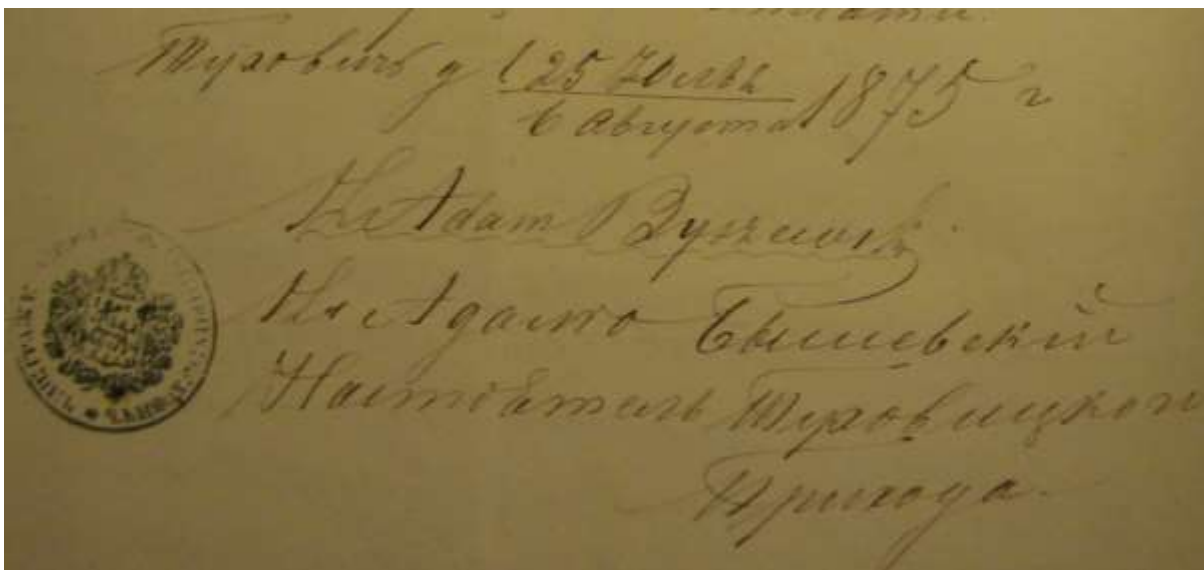 Туховичъ д 25 Юля
6 Августа 1875 г
Кс Adam Byszewski
Кс Адамъ Бышевскій
Настоятель Туховицкого
Прихода.